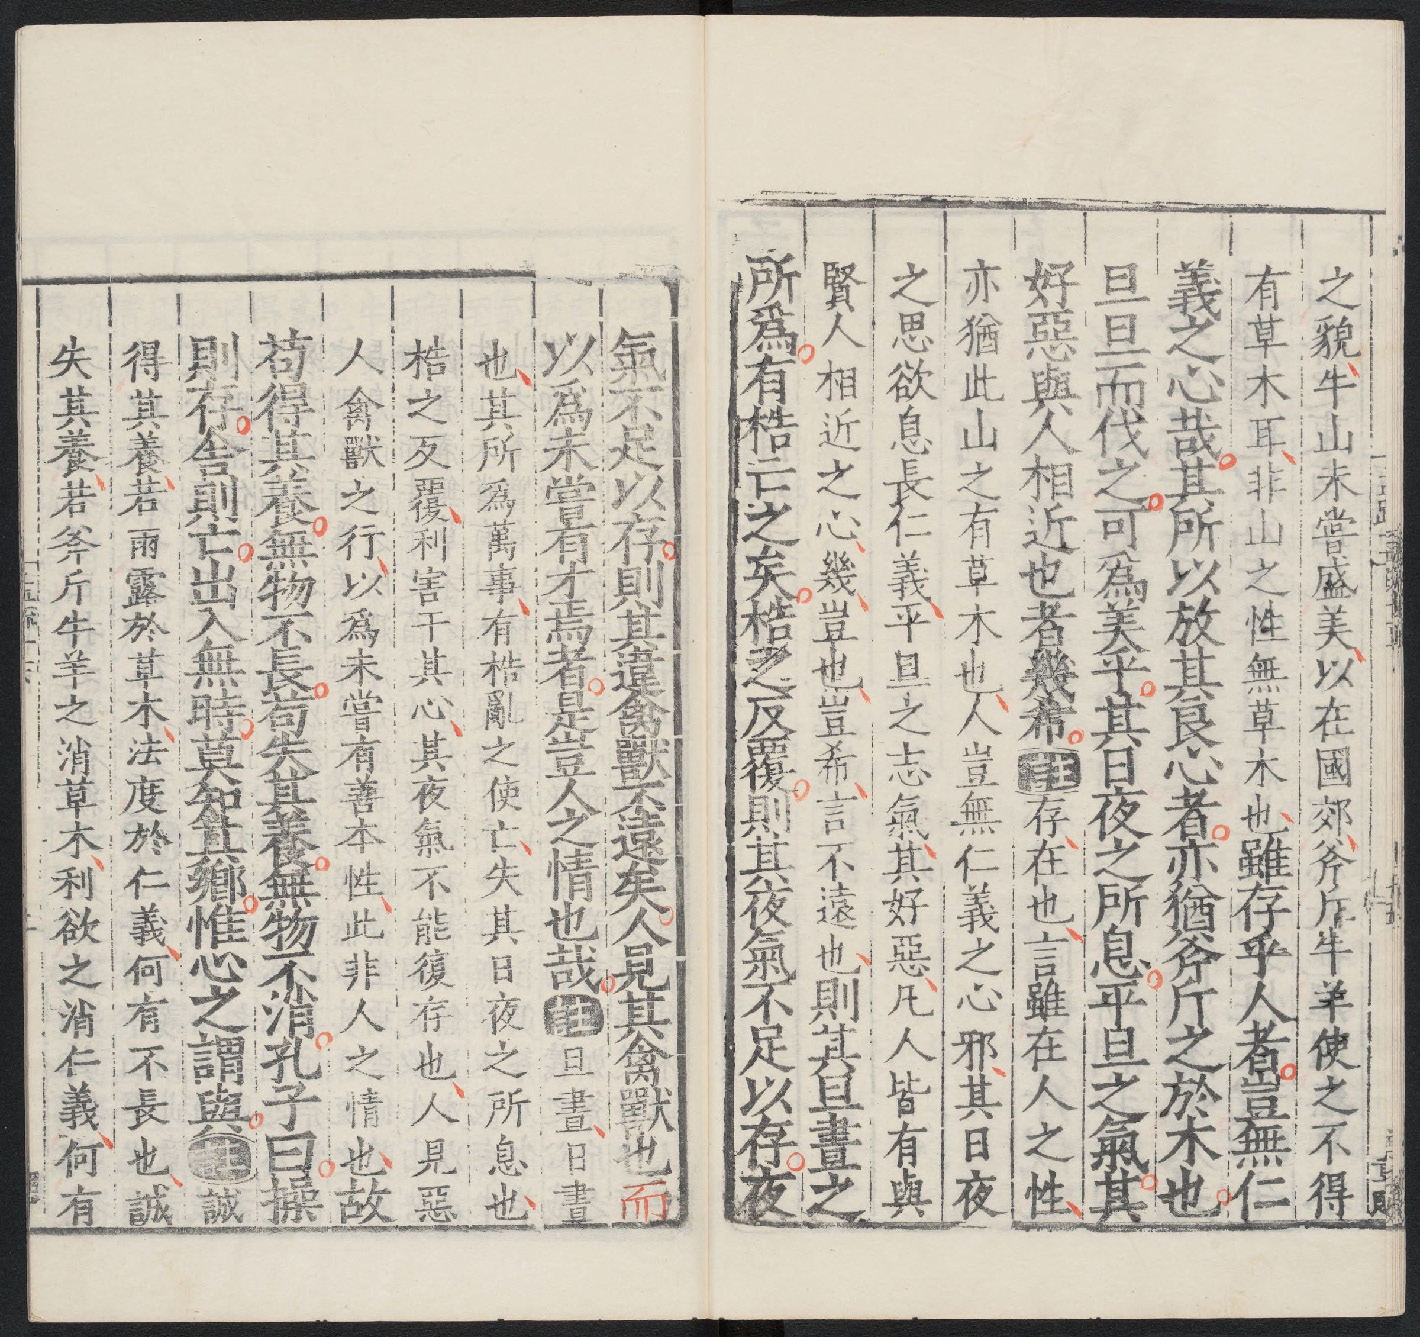 之貌牛山未嘗盛美以在國郊斧斤牛羊使之不得
有草木耳非山之性無草木也雖存乎人者豈無仁
義之心哉其所以放其良心者亦猶斧斤之於木也
旦旦而伐之可爲美乎其日夜之所息平旦之氣其
好惡與人相近也者幾希註存在也言雖在人之性
亦猶此山之有草木也人豈無仁義之心邪其日夜
之思欲息長仁義平旦之志氣其好惡凡人皆有與
賢人相近之心幾豈也豈希言不遠也則其旦晝之
所爲有梏亡之矣梏之反覆則其夜氣不足以存夜
氣不足以存則其違禽獸不遠矣人見其禽獸也而
以爲未嘗有才焉者是豈人之情也哉註旦晝日晝
也其所爲萬事有梏亂之使亡失其日夜之所息也
梏之反覆利害干其心其夜氣不能復存也人見惡
人禽獸之行以爲未嘗有善本性此非人之情也故
苟得其養無物不長苟失其養無物不消孔子曰操
則存舍則亡出入無時莫知其鄉惟心之謂與註誠
得其養若雨露於草木法度於仁義何有不長也誠
失其養若斧斤牛羊之消草木利欲之消仁義何有